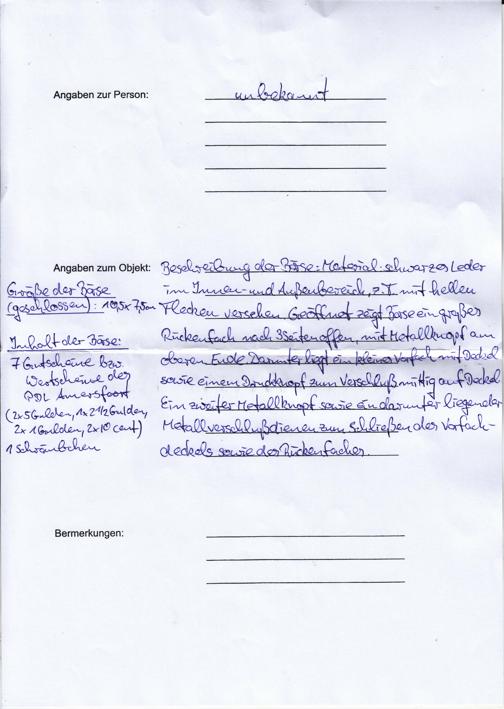 Angaben zur Person: unbekannt
Angaben zum Objekt: Beschreibung der Börse: Material: schwarzes Leder
im Innen- und Außenbereich, z.T. mit hellen
Flecken versehen. Geöffnet zeigt Börse ein großes
Rückenfach nach 3 Seiten offen, mit Metallknopf am
oberen Ende. Darunter liegt ein kleines Vorfach mit Deckel
sowie einem Druckknopf zum Verschluß mittig auf Deckel
Ein zweiter Metallknopf sowie ein darunter liegender
Metallverschluß dienen zum Schließen des Vorfach-
deckels sowie des Rückenfaches.
Größe der Börse
(geschlossen): 10,5x 7,5cm
Inhalt der Börse:
7 Gutscheine bzw.
Wertscheine des
PDL Amersfoort
(2x5 Gulden, 1x 2 1/2 Gulden,
2x 1 Gulden, 2x10 cent)
1 Schräubchen
Bermerkungen: